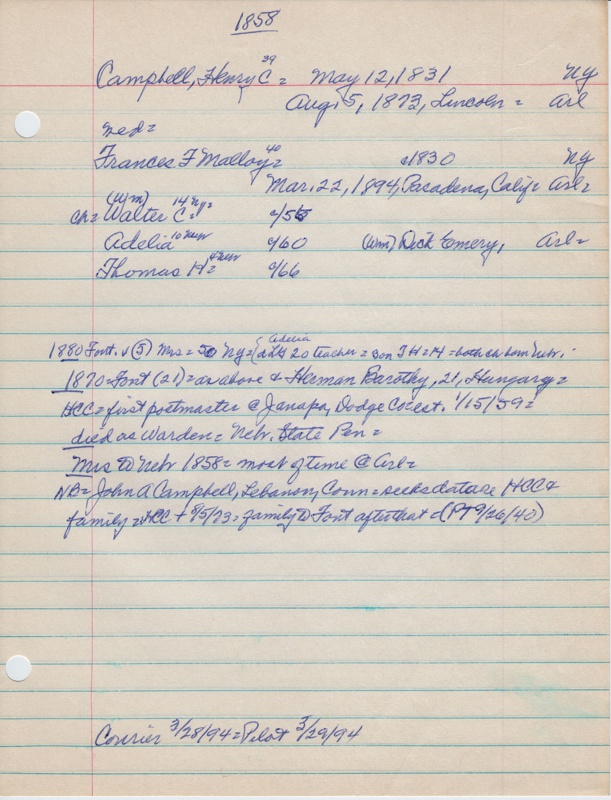 1858
Campbell, Henry C 39 = May 12, 1831 NY
Aug. 5, 1873, Lincoln = Arl
med=
Frances F Malloy 40 = c1830 NY
Mar. 22, 1894, Pasadena, Calif = Arl=
ch= (Wm) Walter C 14 NY = c/55
Adelia 10 Nebr c/60 (Wm) Dick Emery, Arl=
Thomas H 4 Nebr = c/66
1880 Font. v (5) Mrs = 50 NY = Adelia 20 teacher = son TH = 14 = both ch born Nebr.
1870 = Font (21) = as above & Herman Barothy, 21, Hungary =
HCC = first postmaster @ Janapa, Dodge Co est. 1/15/59 =
died as Warden = Nebr. State Pen =
Mrs to Nebr 1858 = most of time @ Arl =
NB = John A Campbell, Lebanon, Conn = seeks data re HCC &
family = HCC + 8/5/73 = family to Font after that = (PT 9/26/40)
Courier 3/28/94 = Pilot 3/29/94